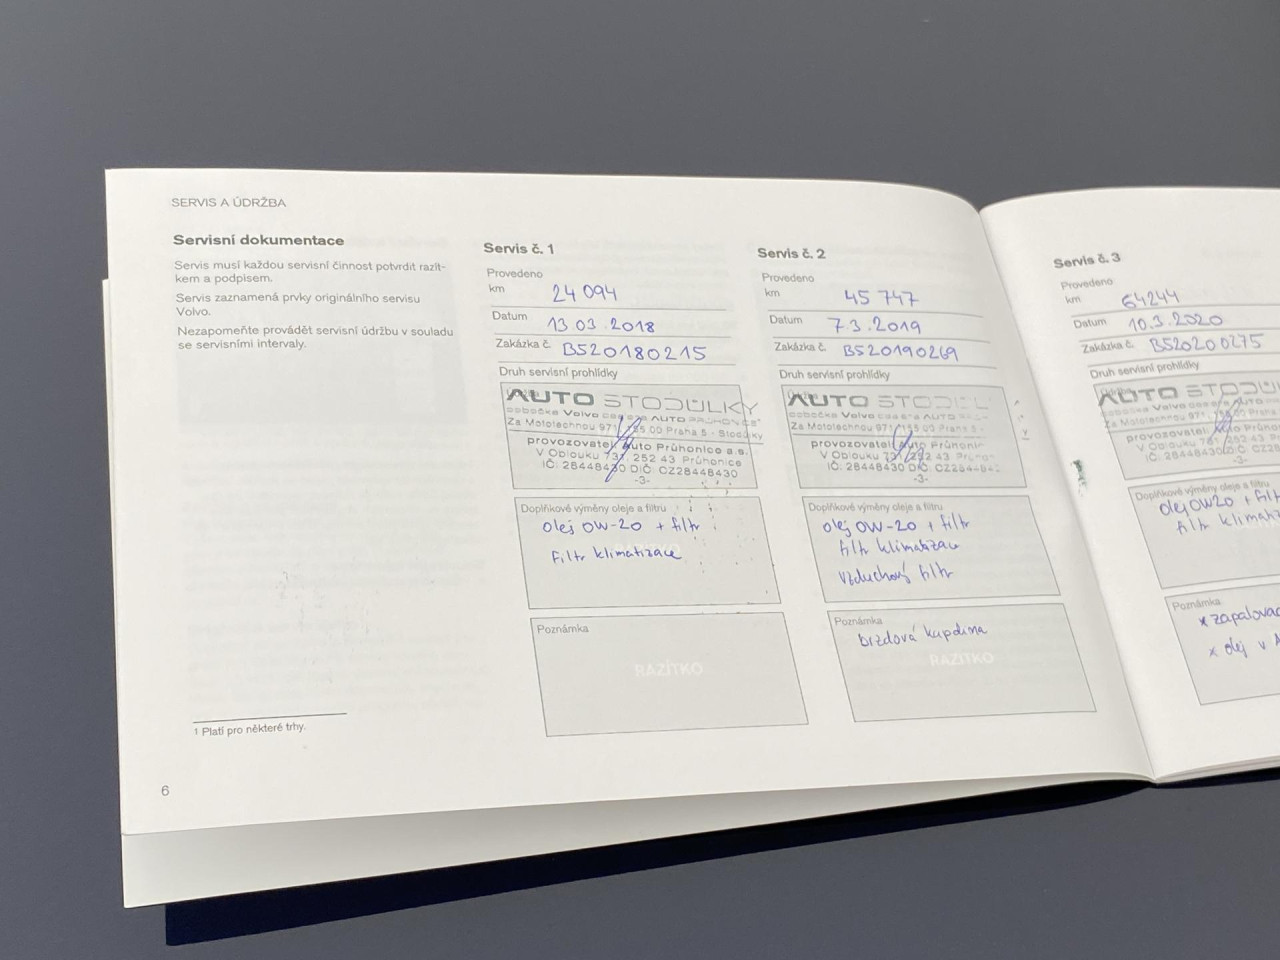 SERVIS A ÚDRŽBA
Servisní dokumentace
Servis musí každou servisní činnost potvrdit razít-
kem a podpisem.
Servis zaznamená prvky originálního servisu
Volvo.
Nezapomeňte provádět servisní údržbu v souladu
se servisními intervaly.
1 Platí pro některé trhy.
6
Servis č. 1
Provedeno
km 24 094
Datum 13 03.2018
Zakázka č. B520180215
Druh servisní prohlídky
AUTO STODŮLKY
pobočka Volvo AUTO PRŮHONICE
Za Mototechnou 971 155 00 Praha 5 - Stodůlky
provozovatel Auto Průhonice a.s.
V Oblouku 731, 252 43 Průhonice
IČ: 28448430 DIČ: CZ28448430
-3-
Doplňkové výměny oleje a filtru
olej 0W-20 + filtr
filtr klimatizace
Poznámka
RAZÍTKO
Servis č. 2
Provedeno
km 45 747
Datum 7.3.2019
Zakázka č. B520190269
Druh servisní prohlídky
AUTO STODŮL
pobočka Volvo AUTO
Za Mototechnou 971 155 00 Praha 5 -
provozovatel Auto Průhonic
V Oblouku 731, 252 43 Průhonice
IČ: 28448430 DIČ: CZ284484
-3-
Doplňkové výměny oleje a filtru
olej 0W-20 + filtr
filtr klimatizace
vzduchový filtr
Poznámka
brzdová kapalina
RAZÍTKO
Servis č. 3
Provedeno
km 64244
Datum 10.3.2020
Zakázka č. B520200275
Druh servisní prohlídky
AUTO STODŮLK
pobočka Volvo
Za Mototechnou 971
provozovatel Auto Průhon
V Oblouku 731 252 43 Průho
IČ: 28448430
-3-
Doplňkové výměny oleje a filtru
olej 0W20 + filt
filtr klimatiz
Poznámka
x zapalovac
x olej v